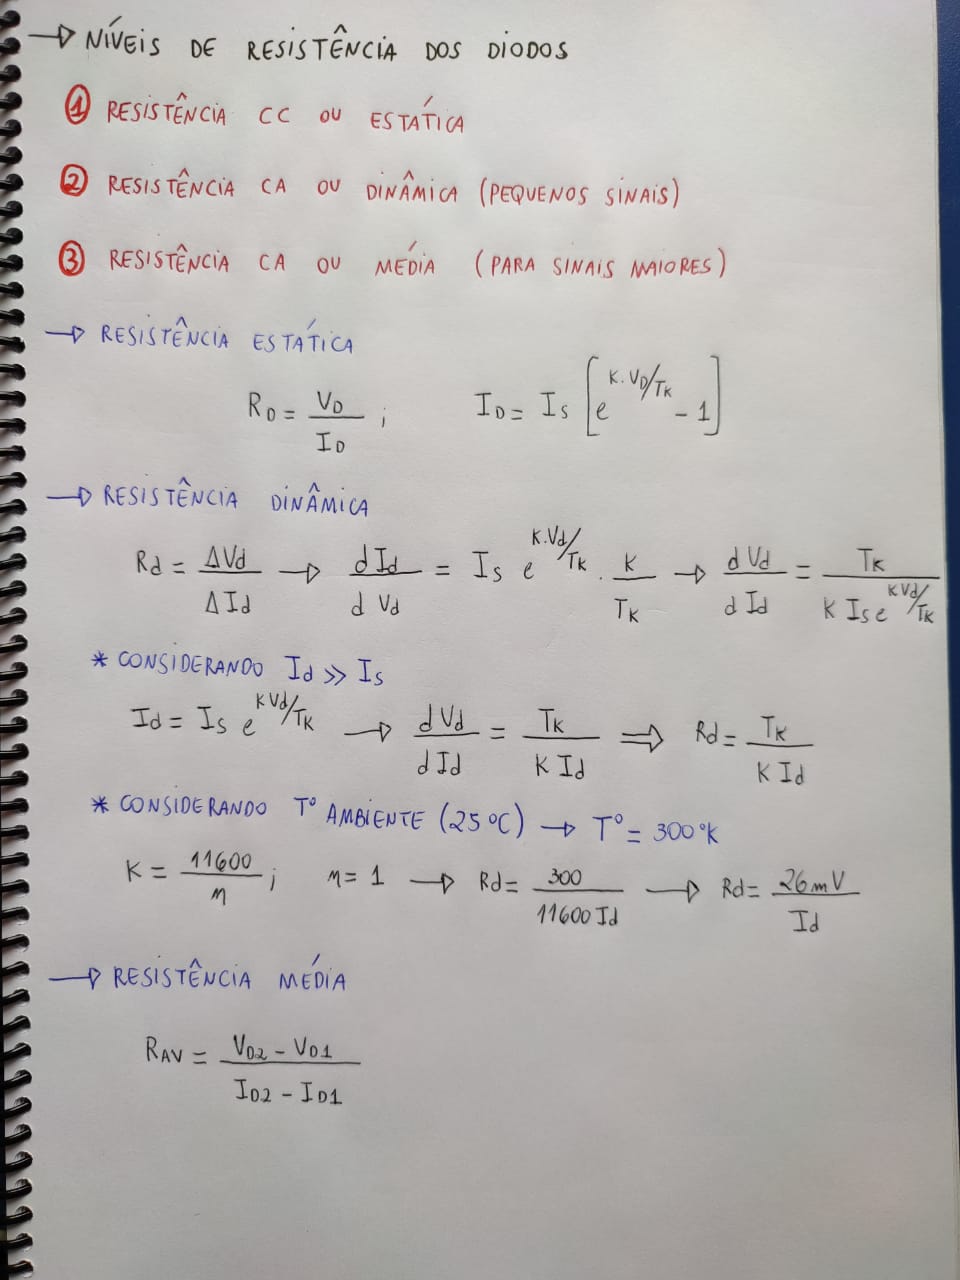 → NÍVEIS DE RESISTÊNCIA DOS DIODOS
① RESISTÊNCIA CC OU ESTÁTICA
② RESISTÊNCIA CA OU DINÂMICA (PEQUENOS SINAIS)
③ RESISTÊNCIA CA OU MÉDIA (PARA SINAIS MAIORES)
→ RESISTÊNCIA ESTÁTICA
R_D = V_D / I_D ; I_D = I_S [e^(K.V_D/T_K) - 1]
→ RESISTÊNCIA DINÂMICA
Rd = ΔVd / ΔId → d Id / d Vd = I_S e^(K.Vd/T_K) . K / T_K → d Vd / d Id = T_K / (K I_S e^(KVd/T_K))
* CONSIDERANDO Id >> I_S
Id = I_S e^(KVd/T_K) → d Vd / d Id = T_K / (K Id) ⇒ Rd = T_K / (K Id)
* CONSIDERANDO T° AMBIENTE (25°C) → T° = 300°K
K = 11600 / η ; η = 1 → Rd = 300 / (11600 Id) → Rd = 26mV / Id
→ RESISTÊNCIA MÉDIA
R_AV = (V_D2 - V_D1) / (I_D2 - I_D1)